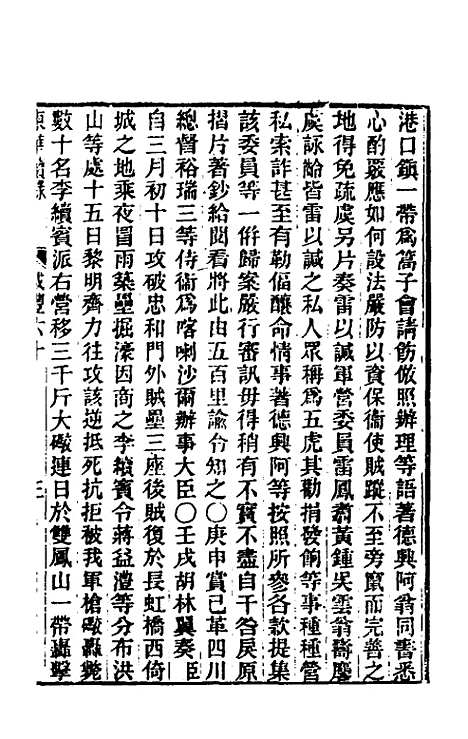 港口鎮一帶爲蒿子會請飭倣照辦理等語著德興阿翁同書悉
心酌覈應如何設法嚴防以資保衞使賊蹤不至旁竄而完善之
地得免疏虞另片奏雷以諴軍營委員雷鳳翥黃鍾吳雲翁
虞詠齡皆雷以諴之私人眾稱爲五虎其勸捐發餉等事種種營
私索詐甚至有勒偪釀命情事著德興阿等按照所參各款提集
該委員等一倂歸案嚴行審訊毋得稍有不實不盡自干咎戾原
摺片著鈔給閱看將此由五百里諭令知之〇庚申賞已革四川
總督裕瑞三等侍衞爲喀喇沙爾辦事大臣〇壬戌胡林翼奏臣
自三月初十日攻破忠和門外賊壘三座後賊復於長虹橋西倚
城之地乘夜冒雨築壘掘濠因商之李續賓令蔣益澧等分布洪
山等處十五日黎明齊力往攻該逆抵死抗拒被我軍槍礮轟斃
數十名李續賓派右營移三千斤大礮連日於雙鳳山一帶轟擊
東華續錄 咸豐六十 三